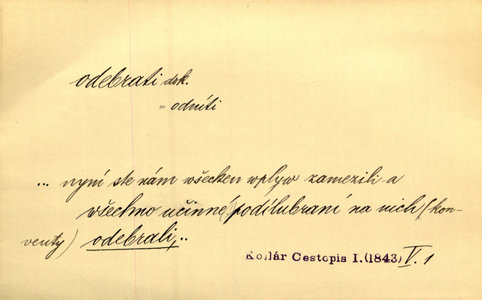 odebrati dok.
= odníti
... nyní ste nám wšecken wplyw zamezili a
wšechno učinné podílubraní na nich (kon-
venty) odebrali,..
Kollár Cestopis I.(1843) V. 1